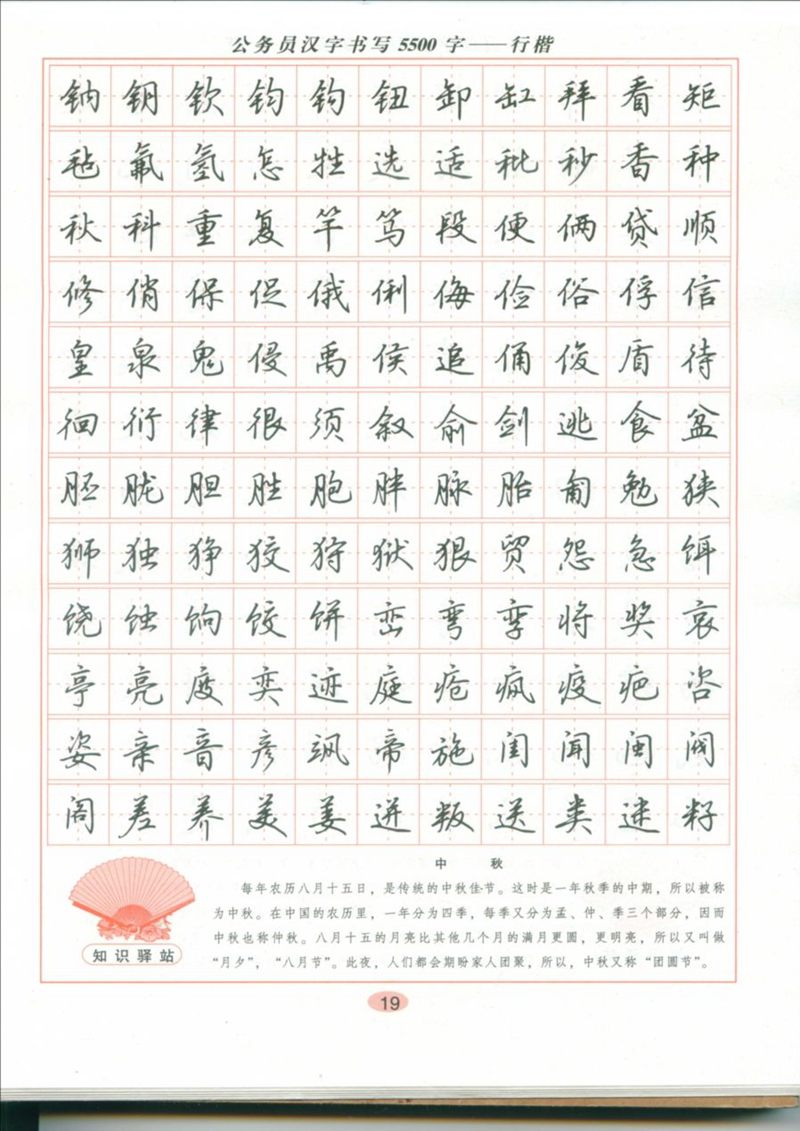 公务员汉字书写5500字——行楷
钠钥钦钧钩钮卸缸拜看矩
毡氟氢怎牲选适秕秒香种
秋科重复竿笃段便俩贷顺
修俏保促俄俐侮俭俗俘信
皇泉鬼侵禹侯追俑俊盾待
徊衍律很须叙俞剑逃食盆
胚胧胆胜胞胖脉胎匍勉狭
狮独狰狡狩狱狠贸怨急饵
饶蚀饷饺饼峦弯孪将奖哀
亭亮度奕迹庭疮疯疫疤咨
姿亲音彦飒帝施闺闻闽阀
阁差养美姜迸叛送类迷籽
中 秋
每年农历八月十五日，是传统的中秋佳节。这时是一年秋季的中期，所以被称
为中秋。在中国的农历里，一年分为四季，每季又分为孟、仲、季三个部分，因而
中秋也称仲秋。八月十五的月亮比其他几个月的满月更圆，更明亮，所以又叫做
“月夕”，“八月节”。此夜，人们都会期盼家人团聚，所以，中秋又称“团圆节”。
知识驿站
19